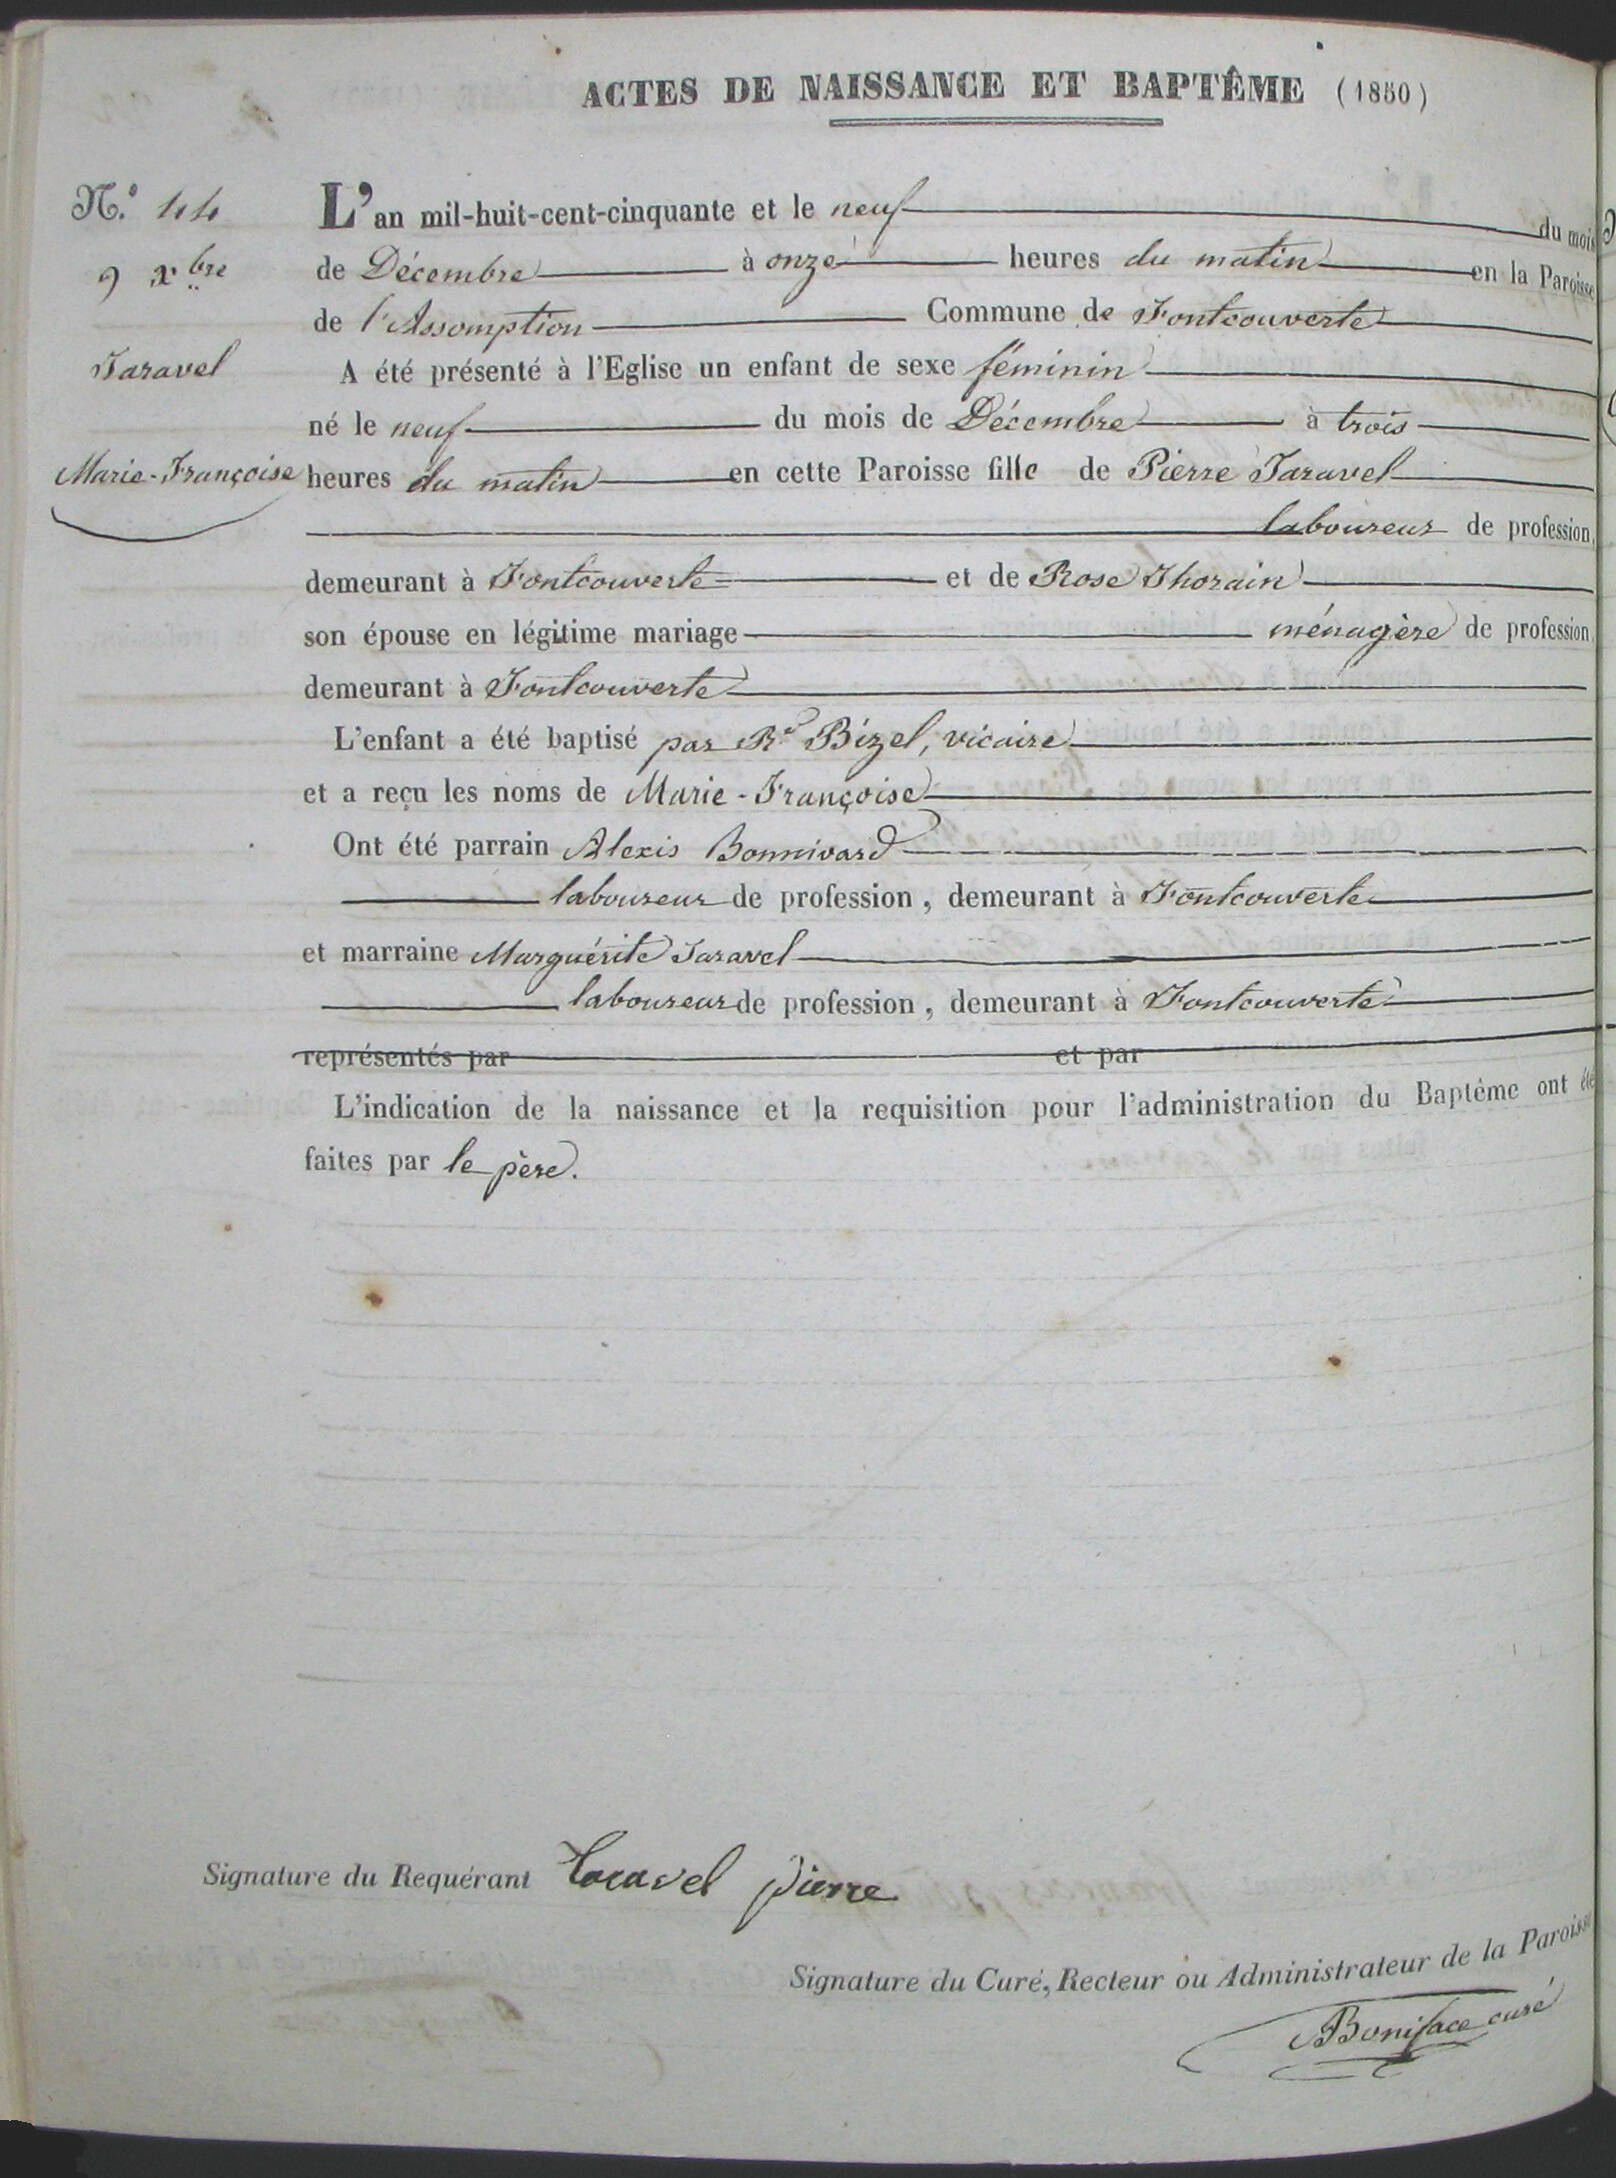 ACTES DE NAISSANCE ET BAPTÊME (1850)
N.º 44
9 xbre
Taravel
Marie-Françoise
L'an mil-huit-cent-cinquante et le neuf du mois
de Décembre à onze heures du matin en la Paroisse
de l'Assomption Commune de Fontcouverte
A été présenté à l'Eglise un enfant de sexe féminin
né le neuf du mois de Décembre à trois
heures du matin en cette Paroisse fille de Pierre Taravel
laboureur de profession,
demeurant à Fontcouverte et de Rose Thorain
son épouse en légitime mariage ménagère de profession,
demeurant à Fontcouverte
L'enfant a été baptisé par Rd Bizel, vicaire
et a reçu les noms de Marie-Françoise
Ont été parrain Alexis Bonnivard
laboureur de profession, demeurant à Fontcouverte
et marraine Marguérite Taravel
laboureur de profession, demeurant à Fontcouverte
représentés par et par
L'indication de la naissance et la requisition pour l'administration du Baptême ont été
faites par le père.
Signature du Requérant Taravel pierre
Signature du Curé, Recteur ou Administrateur de la Paroisse
Boniface curé